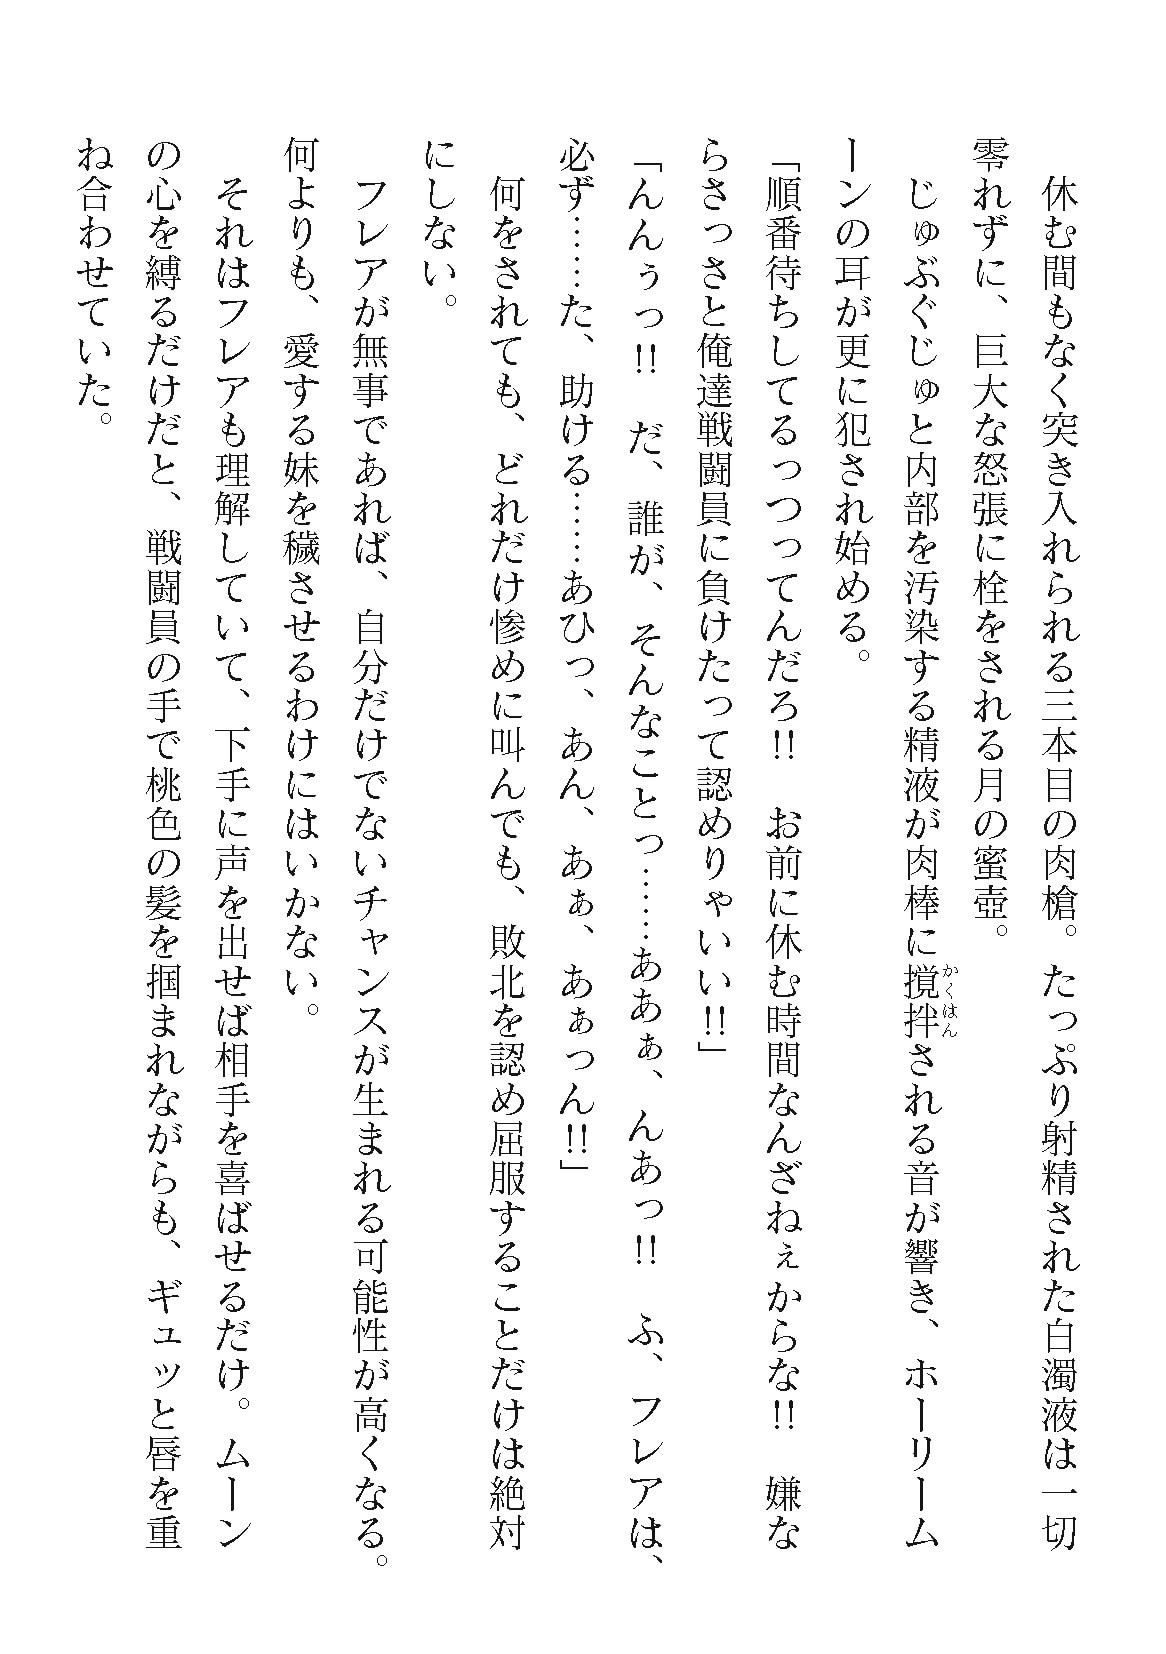 休む間もなく突き入れられる三本目の肉槍。たっぷり射精された白濁液は一切
零れずに、巨大な怒張に栓をされる月の蜜壺。
じゅぶぐじゅと内部を汚染する精液が肉棒に撹拌される音が響き、ホーリーム
ーンの耳が更に犯され始める。
「順番待ちしてるっつってんだろ!!　お前に休む時間なんざねぇからな!!　嫌な
らさっさと俺達戦闘員に負けたって認めりゃいい!!」
「んんぅっ!!　だ、誰が、そんなことっ……ああぁ、んあっ!!　ふ、フレアは、
必ず……た、助ける……あひっ、あん、あぁ、あぁっん!!」
何をされても、どれだけ惨めに叫んでも、敗北を認め屈服することだけは絶対
にしない。
フレアが無事であれば、自分だけでないチャンスが生まれる可能性が高くなる。
何よりも、愛する妹を穢させるわけにはいかない。
それはフレアも理解していて、下手に声を出せば相手を喜ばせるだけ。ムーン
の心を縛るだけだと、戦闘員の手で桃色の髪を掴まれながらも、ギュッと唇を重
ね合わせていた。